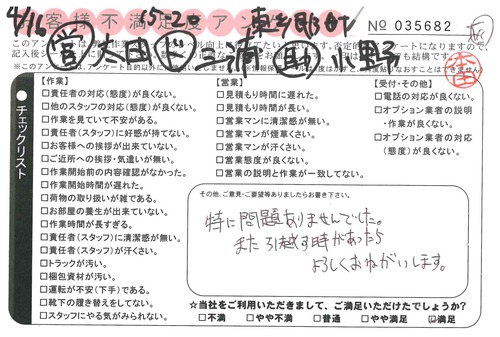 4/16
東京都町
お客様不満足度アン
No 035682
営 太田 三浦 助 小野
チェックリスト
【作業】
□責任者の対応(態度)が良くない。
□他のスタッフの対応(態度)が良くない。
□作業を見ていて不安がある。
□責任者(スタッフ)に好感が持てない。
□お客様への挨拶が出来ていない。
□ご近所への挨拶・気遣いが無い。
□作業開始前の内容確認がなかった。
□作業開始時間が遅れた。
□荷物の取り扱いが雑である。
□お部屋の養生が出来ていない。
□作業時間が長すぎる。
□責任者(スタッフ)に清潔感が無い。
□責任者(スタッフ)が汗くさい。
□トラックが汚い。
□梱包資材が汚い。
□運転が不安(下手)である。
□靴下の履き替えをしてない。
□スタッフにやる気がみられない。
【営業】
□見積もり時間に遅れた。
□見積もり時間が長い。
□営業マンに清潔感が無い。
□営業マンが煙草くさい。
□営業マンが汗くさい。
□営業態度が良くない。
□営業の説明と作業が一致してない。
【受付・その他】
□電話の対応が良くない。
□オプション業者の説明
・作業が良くない。
□オプション業者の対応
(態度)が良くない。
その他、ご意見・ご要望等ありましたらお書き下さい。
特に問題ありませんでした。
また引越す時があったら
よろしくおねがいします。
☆当社をご利用いただきまして、ご満足いただけたでしょうか?
□不満 □やや不満 □普通 □やや満足 ☑満足